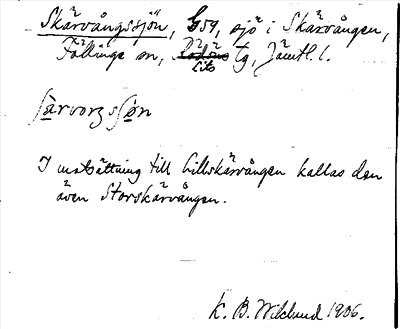 Skärvångssjön, G 59, sjö i Skärvången,
Föllinge sn, Lits tg, Jämtl. l.
I motsättning till Lillskärvången kallas den
även Storskärvången.
K. B. Wiklund 1906.